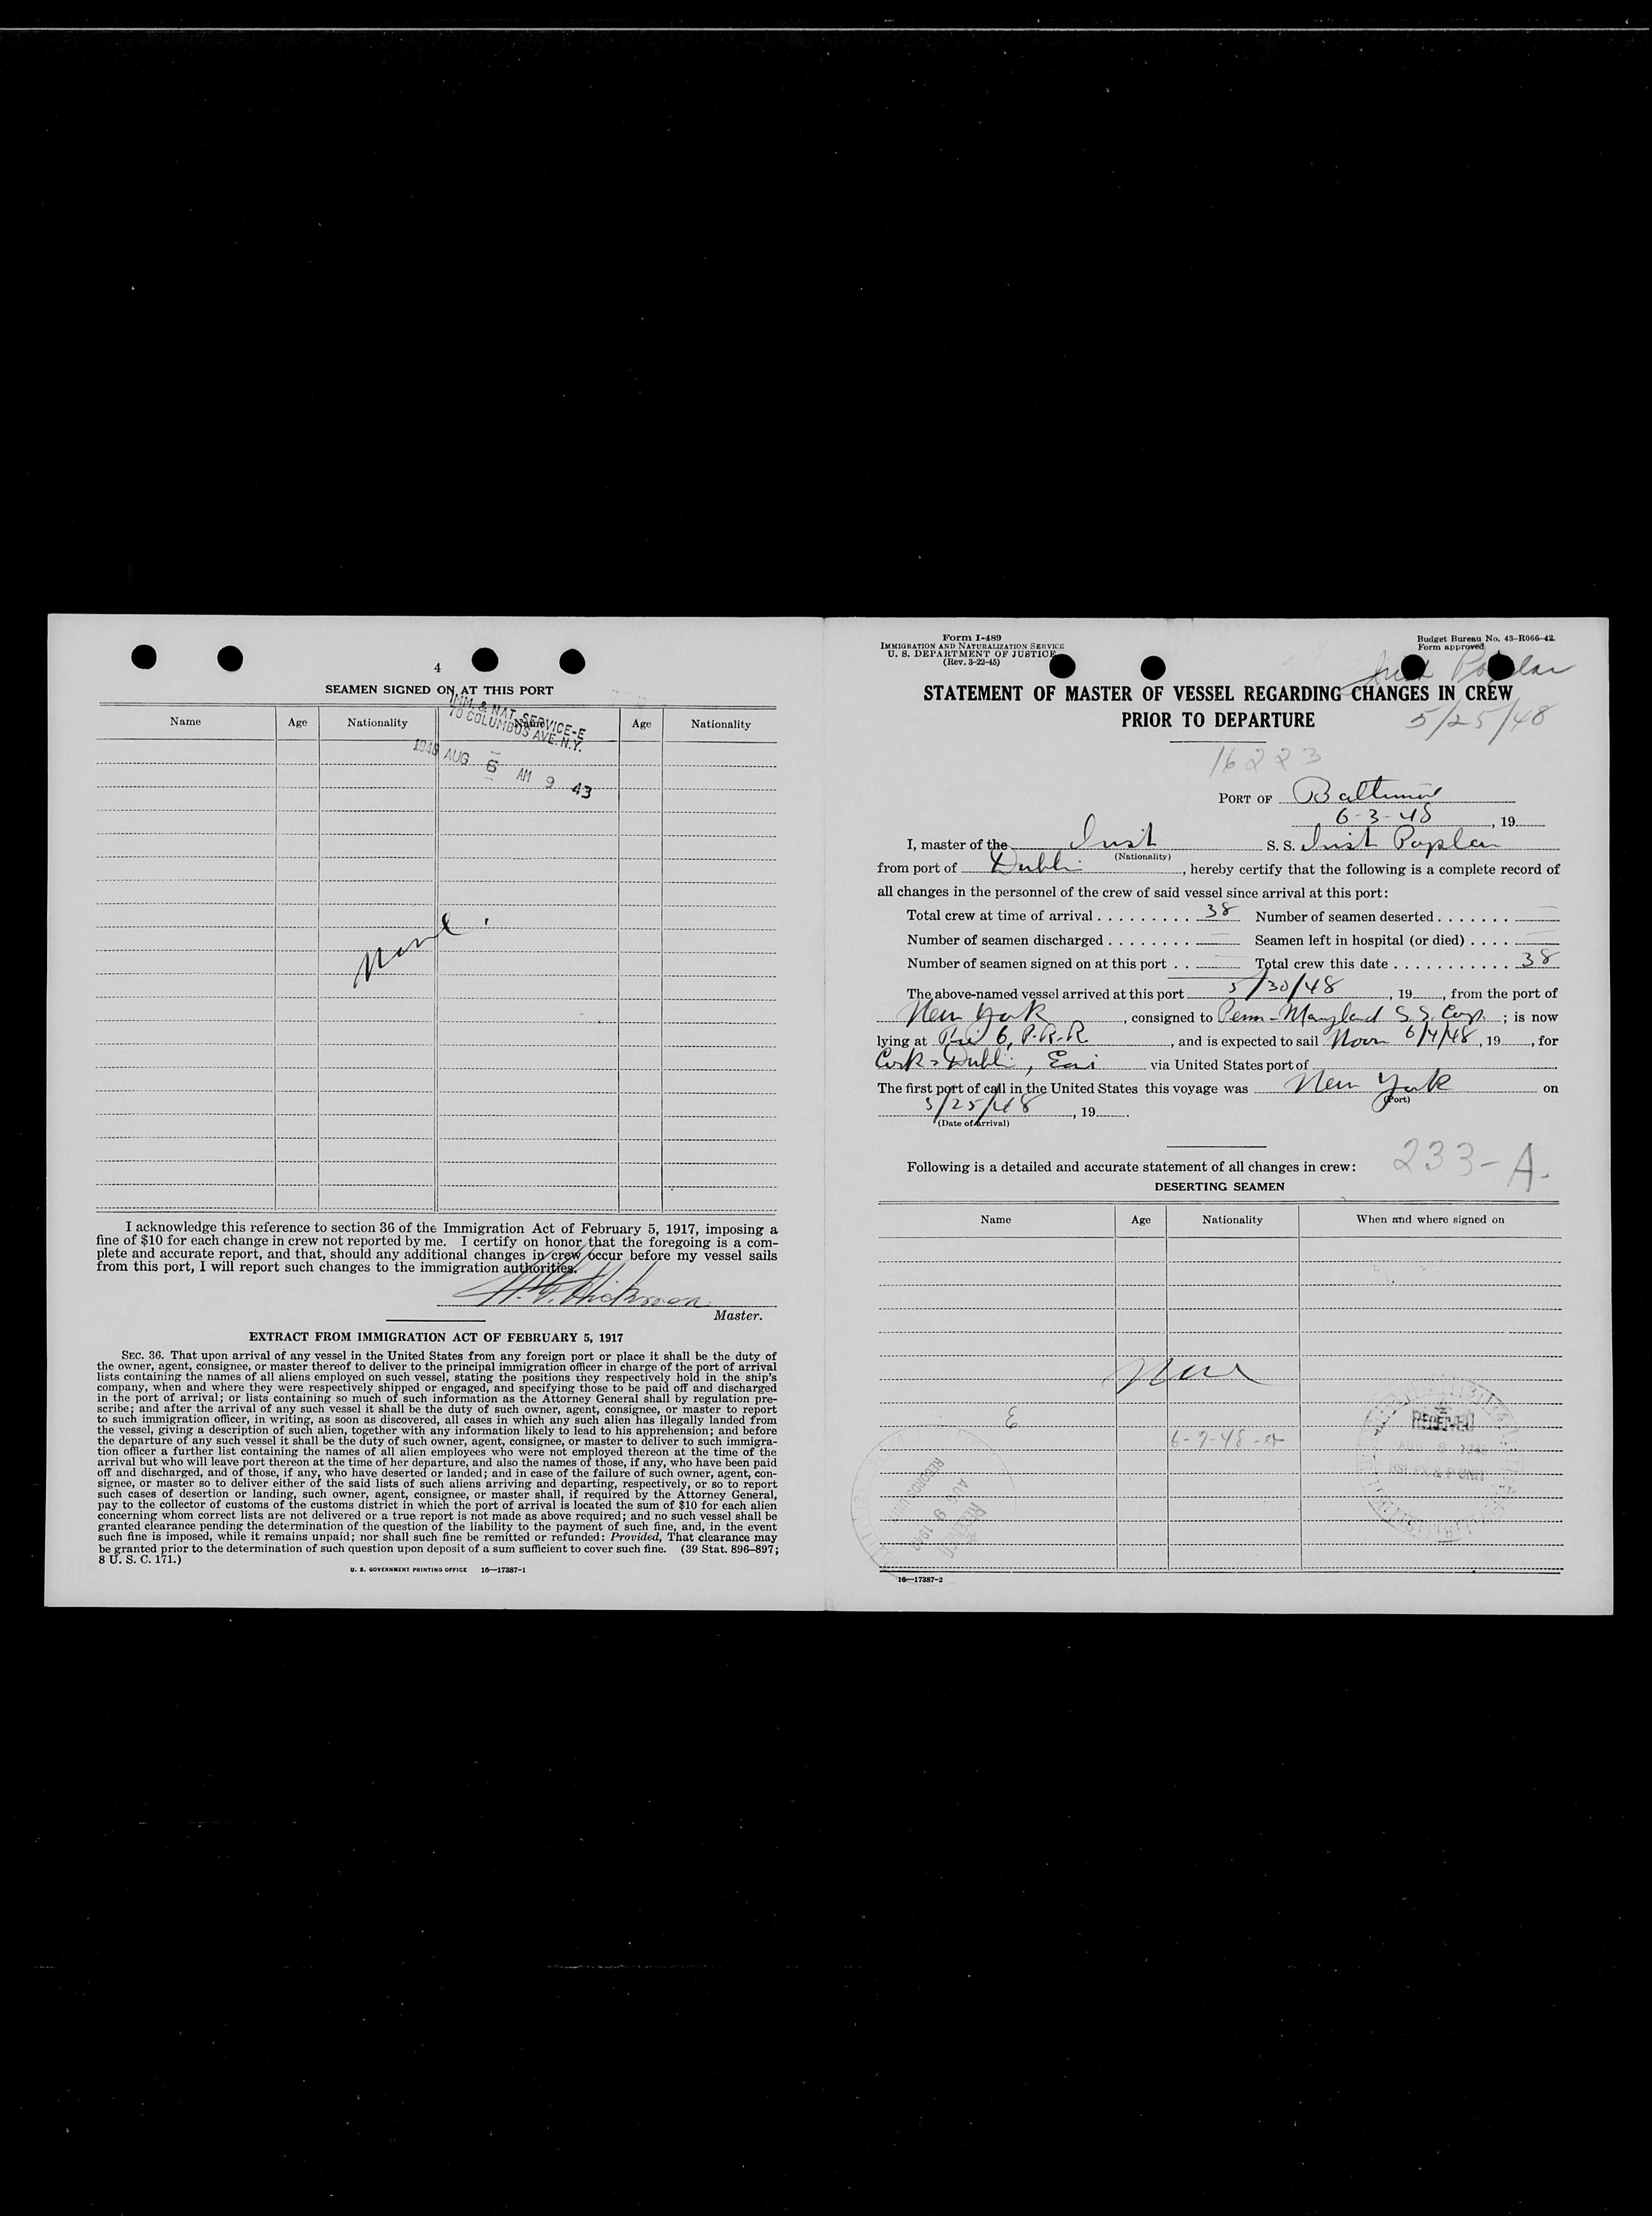 4
SEAMEN SIGNED ON AT THIS PORT
Name Age Nationality Name Age Nationality
IMM. & NAT. SERVICE-E
70 COLUMBUS AVE. N.Y.
1948 AUG 6 AM 9 43
None
I acknowledge this reference to section 36 of the Immigration Act of February 5, 1917, imposing a
fine of $10 for each change in crew not reported by me. I certify on honor that the foregoing is a com-
plete and accurate report, and that, should any additional changes in crew occur before my vessel sails
from this port, I will report such changes to the immigration authorities.
Master.
EXTRACT FROM IMMIGRATION ACT OF FEBRUARY 5, 1917
SEC. 36. That upon arrival of any vessel in the United States from any foreign port or place it shall be the duty of
the owner, agent, consignee, or master thereof to deliver to the principal immigration officer in charge of the port of arrival
lists containing the names of all aliens employed on such vessel, stating the positions they respectively hold in the ship's
company, when and where they were respectively shipped or engaged, and specifying those to be paid off and discharged
in the port of arrival; or lists containing so much of such information as the Attorney General shall by regulation pre-
scribe; and after the arrival of any such vessel it shall be the duty of such owner, agent, consignee, or master to report
to such immigration officer, in writing, as soon as discovered, all cases in which any such alien has illegally landed from
the vessel, giving a description of such alien, together with any information likely to lead to his apprehension; and before
the departure of any such vessel it shall be the duty of such owner, agent, consignee, or master to deliver to such immigra-
tion officer a further list containing the names of all alien employees who were not employed thereon at the time of the
arrival but who will leave port thereon at the time of her departure, and also the names of those, if any, who have been paid
off and discharged, and of those, if any, who have deserted or landed; and in case of the failure of such owner, agent, con-
signee, or master so to deliver either of the said lists of such aliens arriving and departing, respectively, or so to report
such cases of desertion or landing, such owner, agent, consignee, or master shall, if required by the Attorney General,
pay to the collector of customs of the customs district in which the port of arrival is located the sum of $10 for each alien
concerning whom correct lists are not delivered or a true report is not made as above required; and no such vessel shall be
granted clearance pending the determination of the question of the liability to the payment of such fine, and, in the event
such fine is imposed, while it remains unpaid; nor shall such fine be remitted or refunded: Provided, That clearance may
be granted prior to the determination of such question upon deposit of a sum sufficient to cover such fine. (39 Stat. 896–897;
8 U. S. C. 171.)
U. S. GOVERNMENT PRINTING OFFICE 16—17387-1
Form I-489
IMMIGRATION AND NATURALIZATION SERVICE
U. S. DEPARTMENT OF JUSTICE
(Rev. 3-22-45)
Budget Bureau No. 43–R066–42.
Form approved
Irish Poplar
STATEMENT OF MASTER OF VESSEL REGARDING CHANGES IN CREW
PRIOR TO DEPARTURE
5/25/48
16223
PORT OF Baltimore
6-3-48, 19
I, master of the Irish S. S. Irish Poplar
(Nationality)
from port of Dublin, hereby certify that the following is a complete record of
all changes in the personnel of the crew of said vessel since arrival at this port:
Total crew at time of arrival 38 Number of seamen deserted —
Number of seamen discharged — Seamen left in hospital (or died) —
Number of seamen signed on at this port — Total crew this date 38
The above-named vessel arrived at this port 5/30/48, 19, from the port of
New York, consigned to Penn-Maryland S.S. Corp.; is now
lying at Pier 6, P.R.R., and is expected to sail Noon 6/4/48, 19, for
Cork & Dublin, Eire via United States port of
The first port of call in the United States this voyage was New York on
(Port)
5/25/48, 19
(Date of arrival)
Following is a detailed and accurate statement of all changes in crew: 233-A.
DESERTING SEAMEN
Name Age Nationality When and where signed on
None
E
6-7-48
RECEIVED
AUG 9 1948
RECORDS UNIT
RECEIVED
AUG 8 1948
16—17387-2